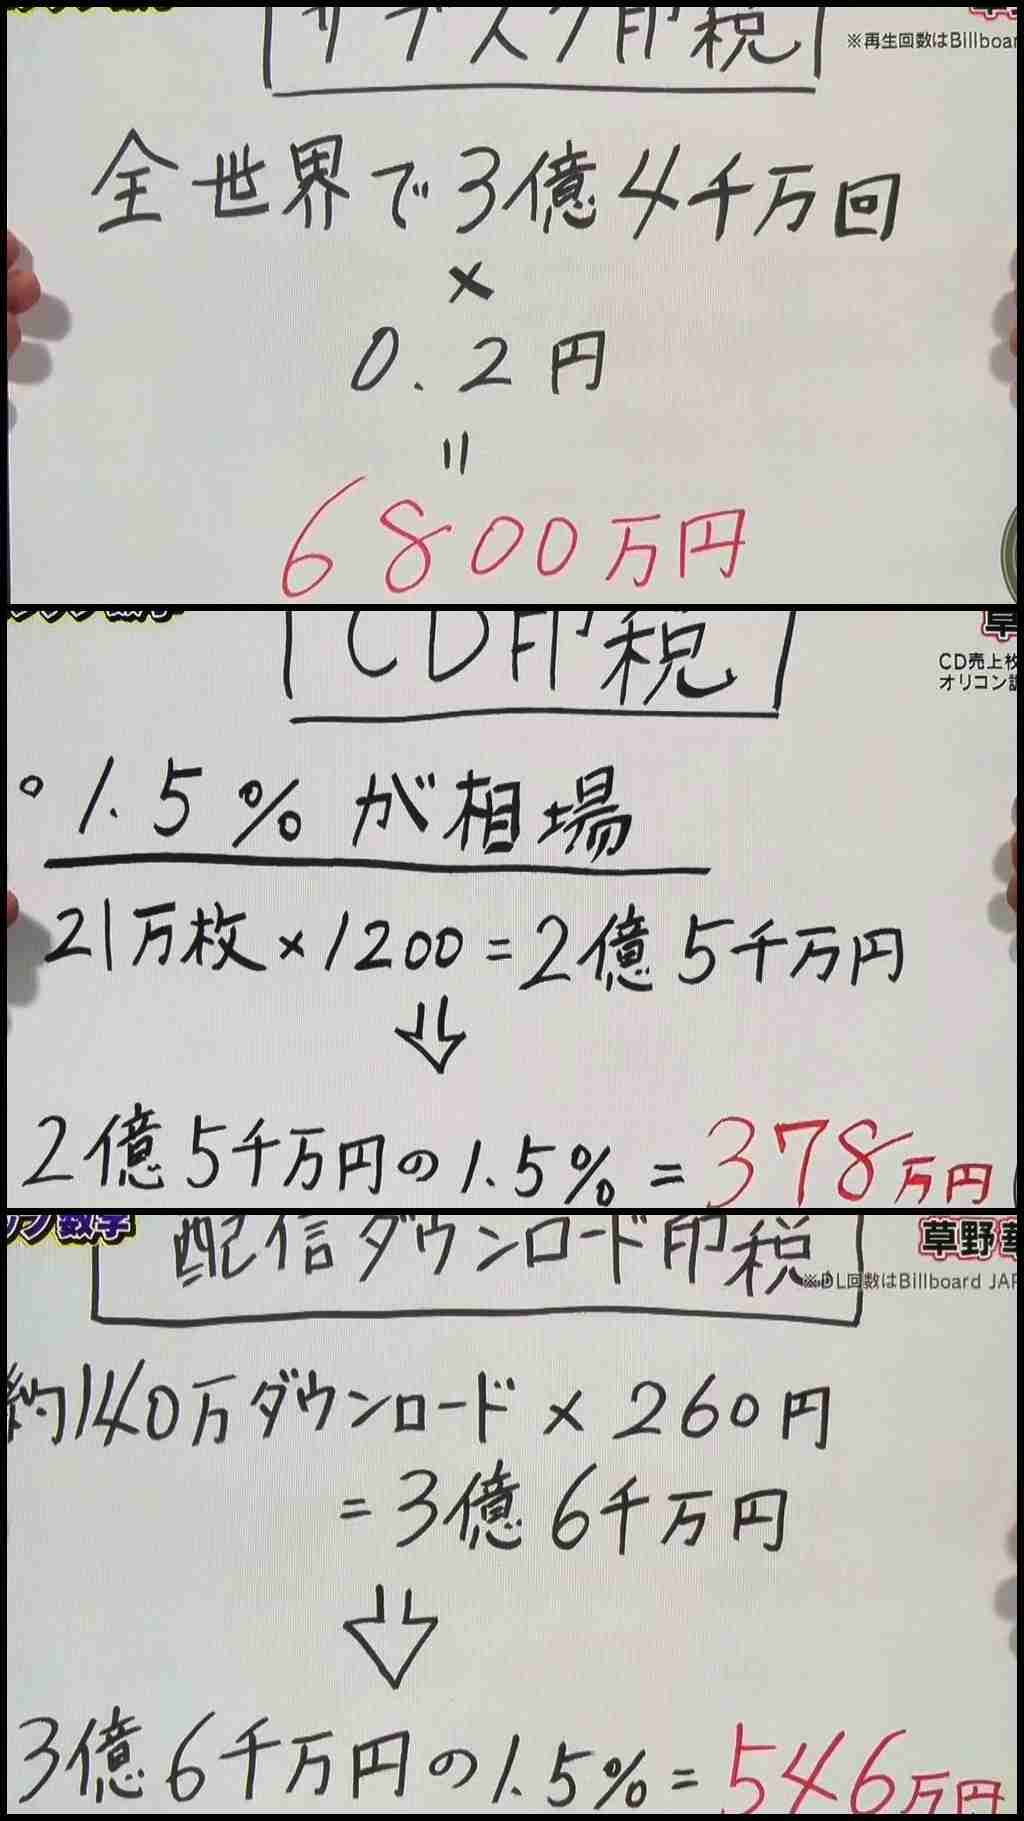 サブスク印税
※再生回数はBillboar
全世界で3億4千万回
×
0.2円
=
6800万円
CD印税
CD売上枚
オリコン調
。1.5%が相場
21万枚×1200=2億5千万円
⇩
2億5千万円の1.5%=378万円
数学
配信ダウンロード印税
草野華
※DL回数はBillboard JAP
約140万ダウンロード×260円
=3億6千万円
⇩
3億6千万円の1.5%=546万円